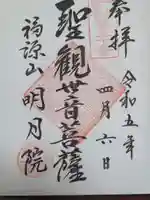 奉拝
令和五年
四月六日
聖観世音菩薩
福源山明月院